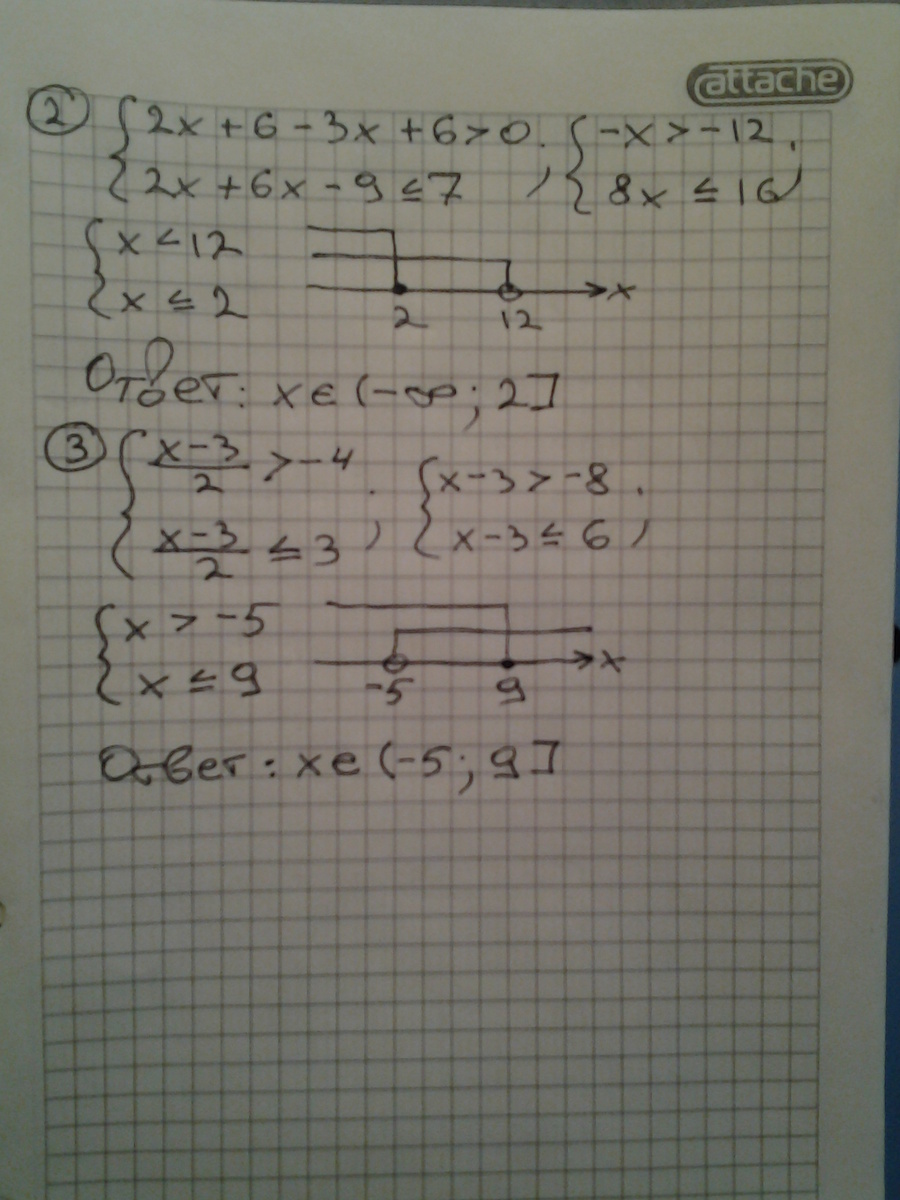 attache
② { 2x + 6 - 3x + 6 > 0 ; { -x > -12 ;
2x + 6x - 9 ≤ 7 8x ≤ 16
{ x < 12
x ≤ 2 x
2 12
Ответ: x ∈ (-∞; 2]
③ { x-3/2 > -4 ; { x-3 > -8 ;
x-3/2 ≤ 3 x-3 ≤ 6
{ x > -5
x ≤ 9 x
-5 9
Ответ: x ∈ (-5; 9]